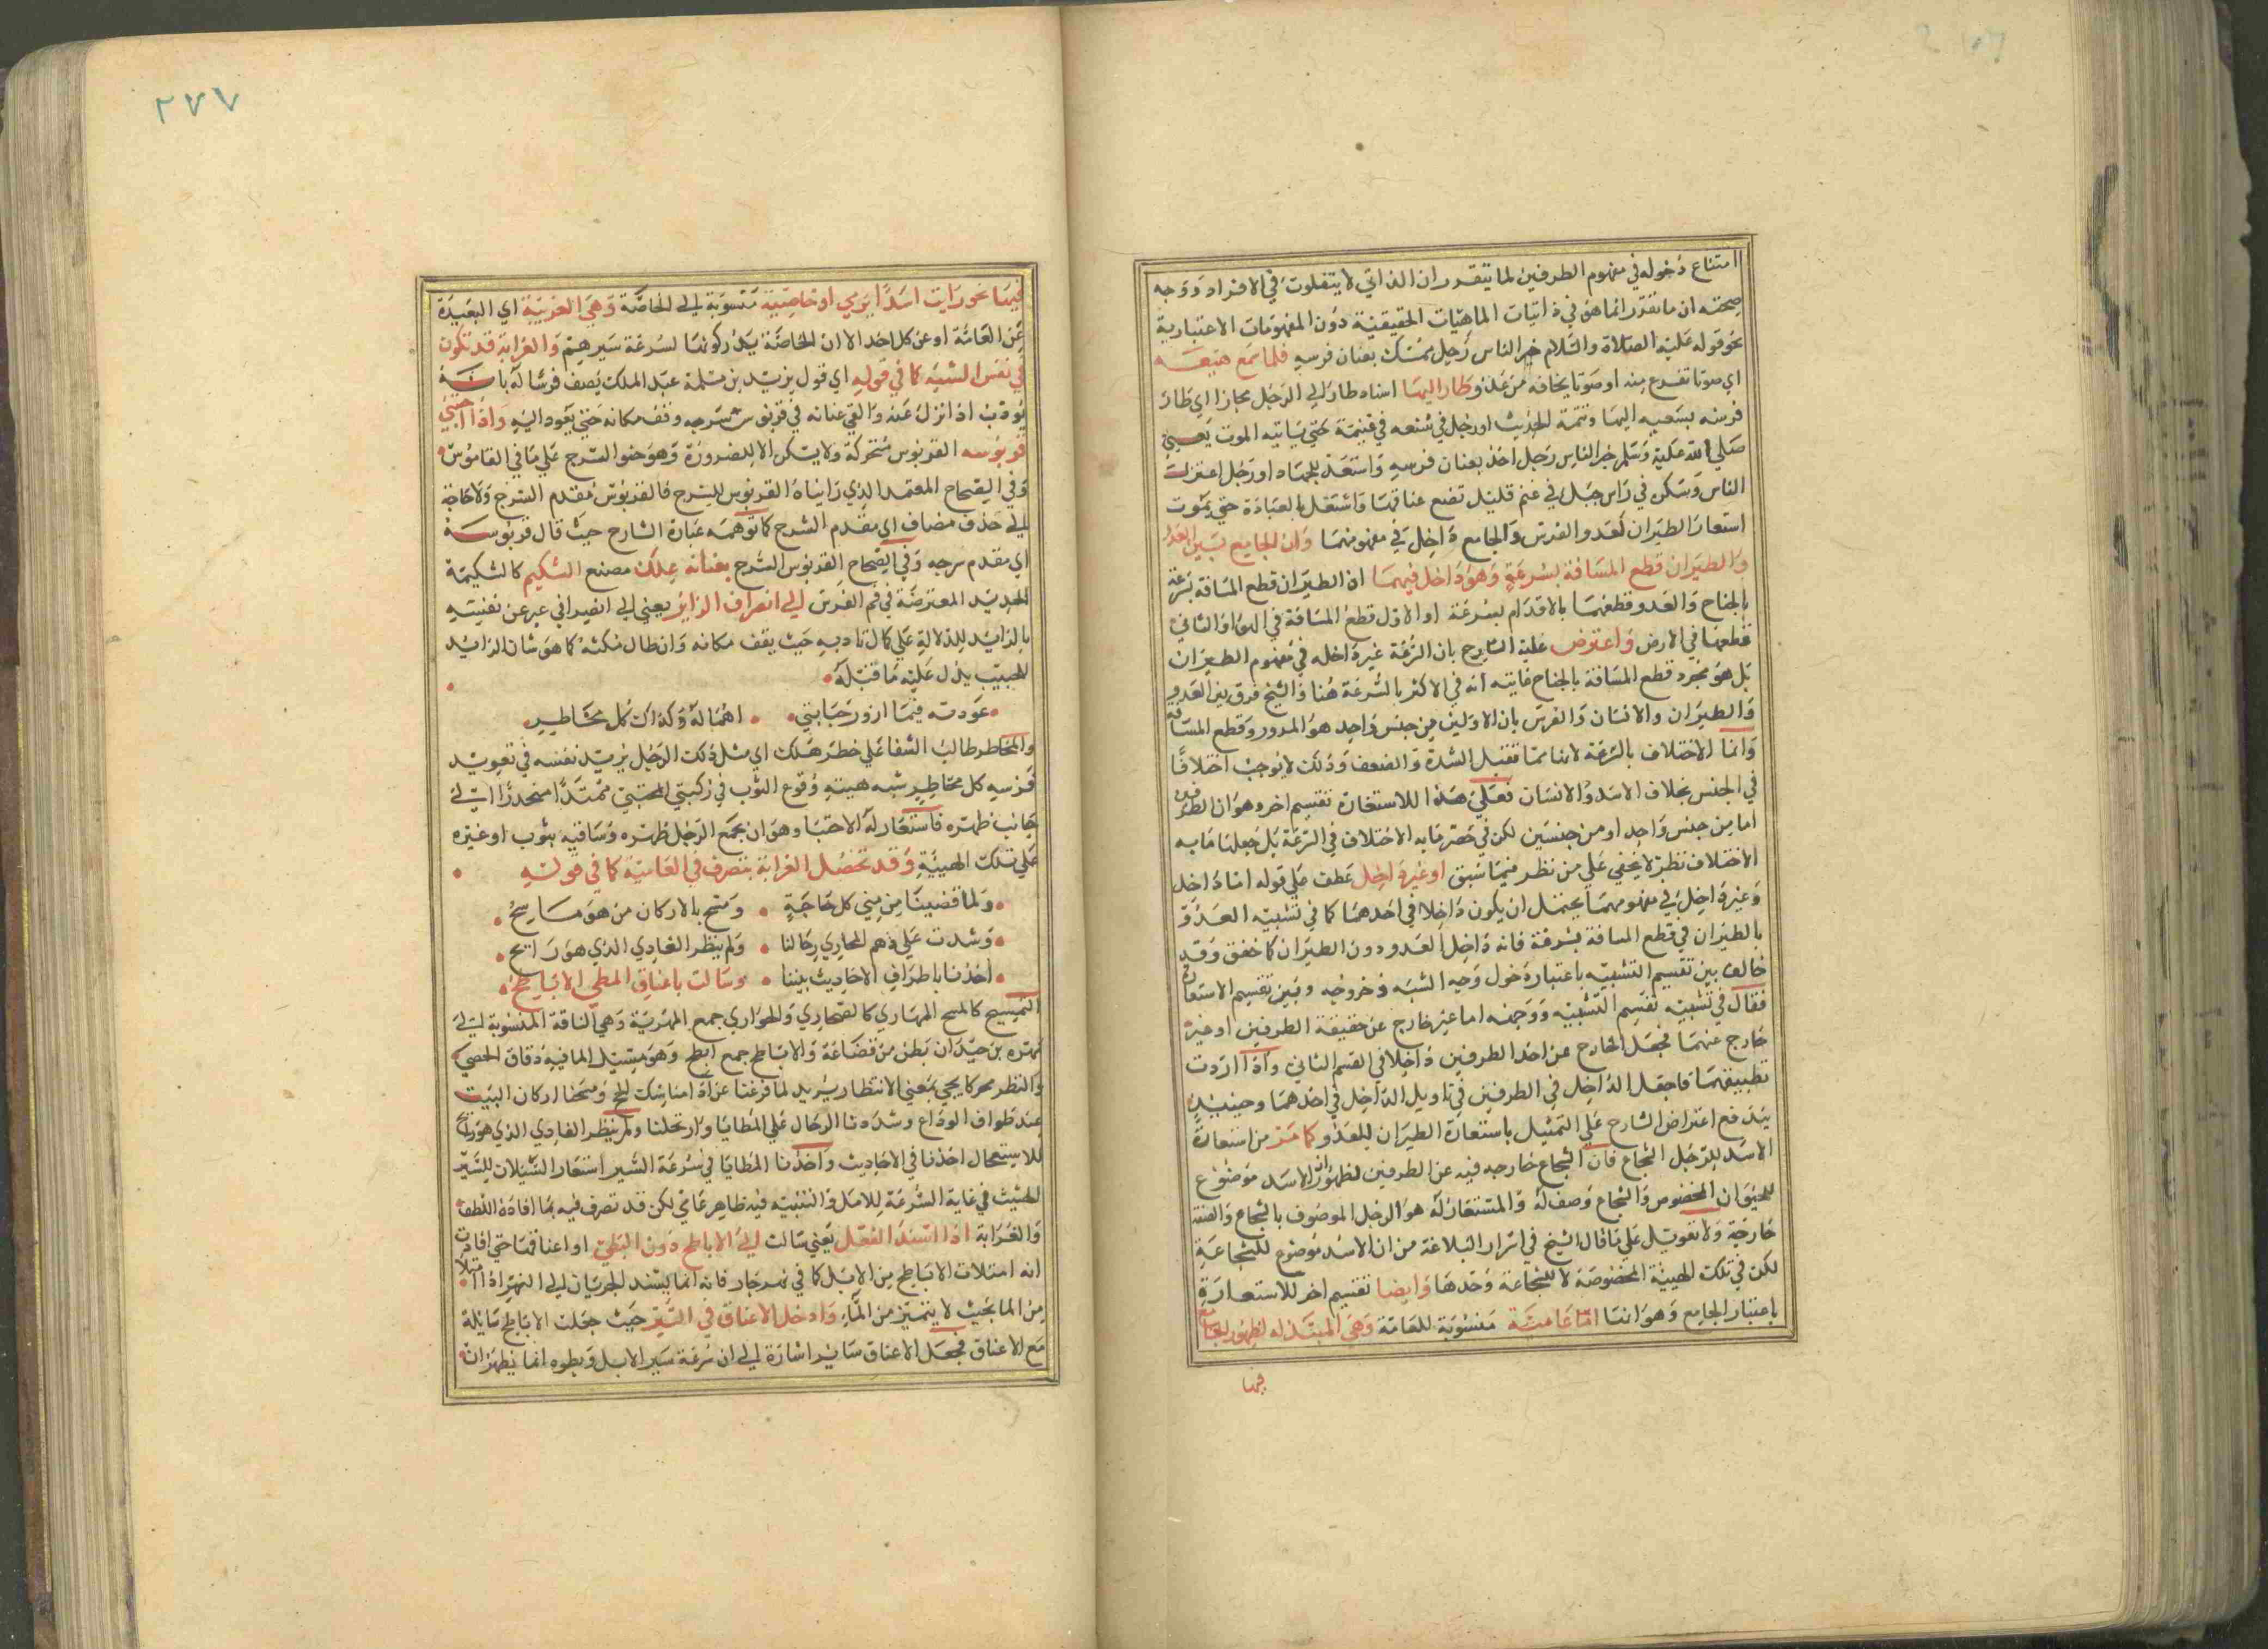 امتناع دخوله في مفهوم الطرفين لما يتقرر ان الذاتي لا يتفاوت في الافراد ووجه
صحته ان ما تقرر انما هو في ذاتيات الماهيات الحقيقية دون المفهومات الاعتبارية
نحو قوله عليه الصلاة والسلام خير الناس رجل ممسك بعنان فرسه فلما سمع هيعـــة
اي صوتا تفزع منه او صوتا يخافه من عدو طار اليها اسناد طار الي الرجل مجازا اي طار
فرسه بسعيه اليها وتتمة الحديث او رجل في شعفة في غنيمة حتي ياتيه الموت يعني
صلي الله عليه وسلم خير الناس رجل اخذ بعنان فرسه واستعد للجهاد او رجل اعتزل
الناس وسكن في راس جبل في غنم قليل واشتغل بالعبادة حتي يموت
استعار الطيران لعدو الفرس والجامع داخل في مفهومهما وان الجامع بين العدو
والطيران قطع المسافة بسرعة وهو داخل فيهما اذ الطيران قطع المسافة بسرعة
بالجناح والعدو قطعها بالاقدام بسرعة او الاول قطع المسافة في الهوا والثاني
قطعها في الارض واعترض عليه الشارح بان السرعة غير داخله في مفهوم الطيران
بل هو مجرد قطع المسافة بالجناح غايته انه في الاكثر بالسرعة هنا والشيخ فرق بين العدو
والطيران والانسان والفرس بان الاولين من جنس واحد هو المرور وقطع المسافة
وانما الاختلاف بالسرعة لانها مما تقبل الشدة والضعف وذلك لا يوجب اختلافا
في الجنس بخلاف الاسد والانسان فعلي هذا للاستعارة تقسيم اخر وهو ان الطرفين
اما من جنس واحد او من جنسين لكن في حصر ما به الاختلاف في السرعة بل جعلها ما به
الاختلاف نظر لا يخفي علي من نظر فيما سبق او غير داخل عطف علي قوله اما داخل
وغير داخل في مفهومهما يحتمل ان يكون داخلا في احدهما كما في تشبيه العدو
بالطيران في قطع المسافة بسرعة فانه داخل العدو دون الطيران كما حقق وقد
خالف بين تقسيم التشبيه باعتبار دخول وجه الشبه وخروجه وبين تقسيم الاستعارة
فقال في تشبيه تقسيم التشبيه ووجهه اما غير خارج عن حقيقة الطرفين او غير
خارج عنهما فجعل الخارج عن احد الطرفين داخلا في القسم الثاني واذا اردت
تطبيقهما فاجعل الداخل في الطرفين في تاويل الداخل في احدهما وحينئذ
يندفع اعتراض الشارح علي التمثيل باستعارة الطيران للعدو كما مر من استعارة
الاسد للرجل الشجاع فان الشجاع خارجه فيه عن الطرفين لظهور ان الاسد موضوع
للحيوان المخصوص والشجاع وصف له والمستعار له هو الرجل الموصوف بالشجاع والصفة
خارجة ولا تعويل علي ما قال الشيخ في اسرار البلاغة من ان الاسد موضوع للشجاعة
لكن في تلك الهيئة المخصوصة لا للشجاعة وحدها وايضا تقسيم اخر للاستعارة
باعتبار الجامع وهو انها اما عامية منسوبة للعامة وهي المبتذله لظهور الجامع
فيها
٢٧٧
فيها نحو رايت اسدا يرمي او خاصية منسوبة الي الخاصة وهي الغريبة اي البعيدة
عن العامة او عن كل احد الا ان الخاصة يدركونها لسرعة سيرهم والغرابة قد تكون
في نفس الشبه كما في قوله اي قول يزيد بن مسلمة عبد الملك يصف فرسا له بانه
يودب اذا نزل عنه والقي عنانه في قربوس سرجه وقف مكانه حتي يعود اليه واذا احتبي
قربوسه القربوس متحركة ولا يسكن الا للضرورة وهو حنو السرج علي ما في القاموس
وفي الصحاح المعتمد الذي رايناه القربوس للسرج فالقربوس مقدم السرج ولا حاجة
الي حذف مضاف اي مقدم السرج كما توهمه عبارة الشارح حيث قال قربوسه
اي مقدم سرجه وفي الصحاح القربوس السرج بعنانه علك مصنع الشكيم كالشكيمة
الحديد المعترضة في فم الفرس الي انصراف الزاير يعني الي انصرافي عبر عن نفسه
بالزايد للدلالة علي كمال تاديبه حيث يقف مكانه وان طال مكثه كما هو شان الزايد
للحبيب يدل عليه ما قبله
عودته فيما ازور حبايبي اهماله وكذاك كل مخاطر
والمخاطر طالب الشفا علي خطر هلك اي مثل ذلك الرجل يزيد نفسه في تعويد
فرسه كل مخاطر شبه هيئة وقوع الثوب في ركبتي المحتبي ممتدا منحدرا الي
جانب ظهره فاستعار له الاحتبا وهو ان يجمع الرجل ظهره وساقيه بثوب او غيره
علي تلك الهيئة وقد تحصل الغرابة بتصرف في العامية كما في قوله
ولما قضينا من مني كل حاجة ومسح بالاركان من هو ماسح
وشدت علي دهم المهاري رحالنا ولم ينظر الغادي الذي هو رائح
اخذنا باطراف الاحاديث بيننا وسالت باعناق المطي الاباطح
التمسيح كالمسح المهاري كالصحاري والحواري جمع المهرية وهي الناقة المنسوبة الي
مهره بن حيدان بطن من قضاعة والاباطح جمع ابطح وهو مسيل الما فيه دقاق الحصي
والنظر محركا يجي بمعني الانتظار يريد لما فرغنا عن اداء مناسك الحج ومسحنا اركان البيت
عند طواف الوداع وشددنا الرحال علي المطايا وارتحلنا ولم ينظر الغادي الذي هو رائح
للاستعجال اخذنا في الاحاديث واخذنا المطايا في سرعة السير استعار السيلان للسير
الحثيث في غاية السرعة للابل والتشبيه فيه ظاهر عامي لكن قد تصرف فيه بما افاده اللطف
والغرابة اذا اسند الفعل يعني سالت الي الاباطح دون المطي او اعناقها حتي افادت
انه امتلات الاباطح من الابل كما في نهر جار فانه انما يسند الجريان الي النهر اذا امتلا
من الما بحيث لا يتميز من الماء وادخل الاعناق في السير حيث جعلت الاباطح سايلة
مع الاعناق فجعل الاعناق سايرا اشارة الي ان سرعة سير الابل وبطوه انما يظهران